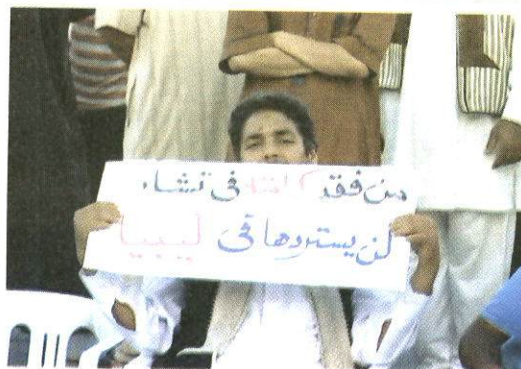 من فقد كرامته في تشاد
لن يستردها في ليبيا